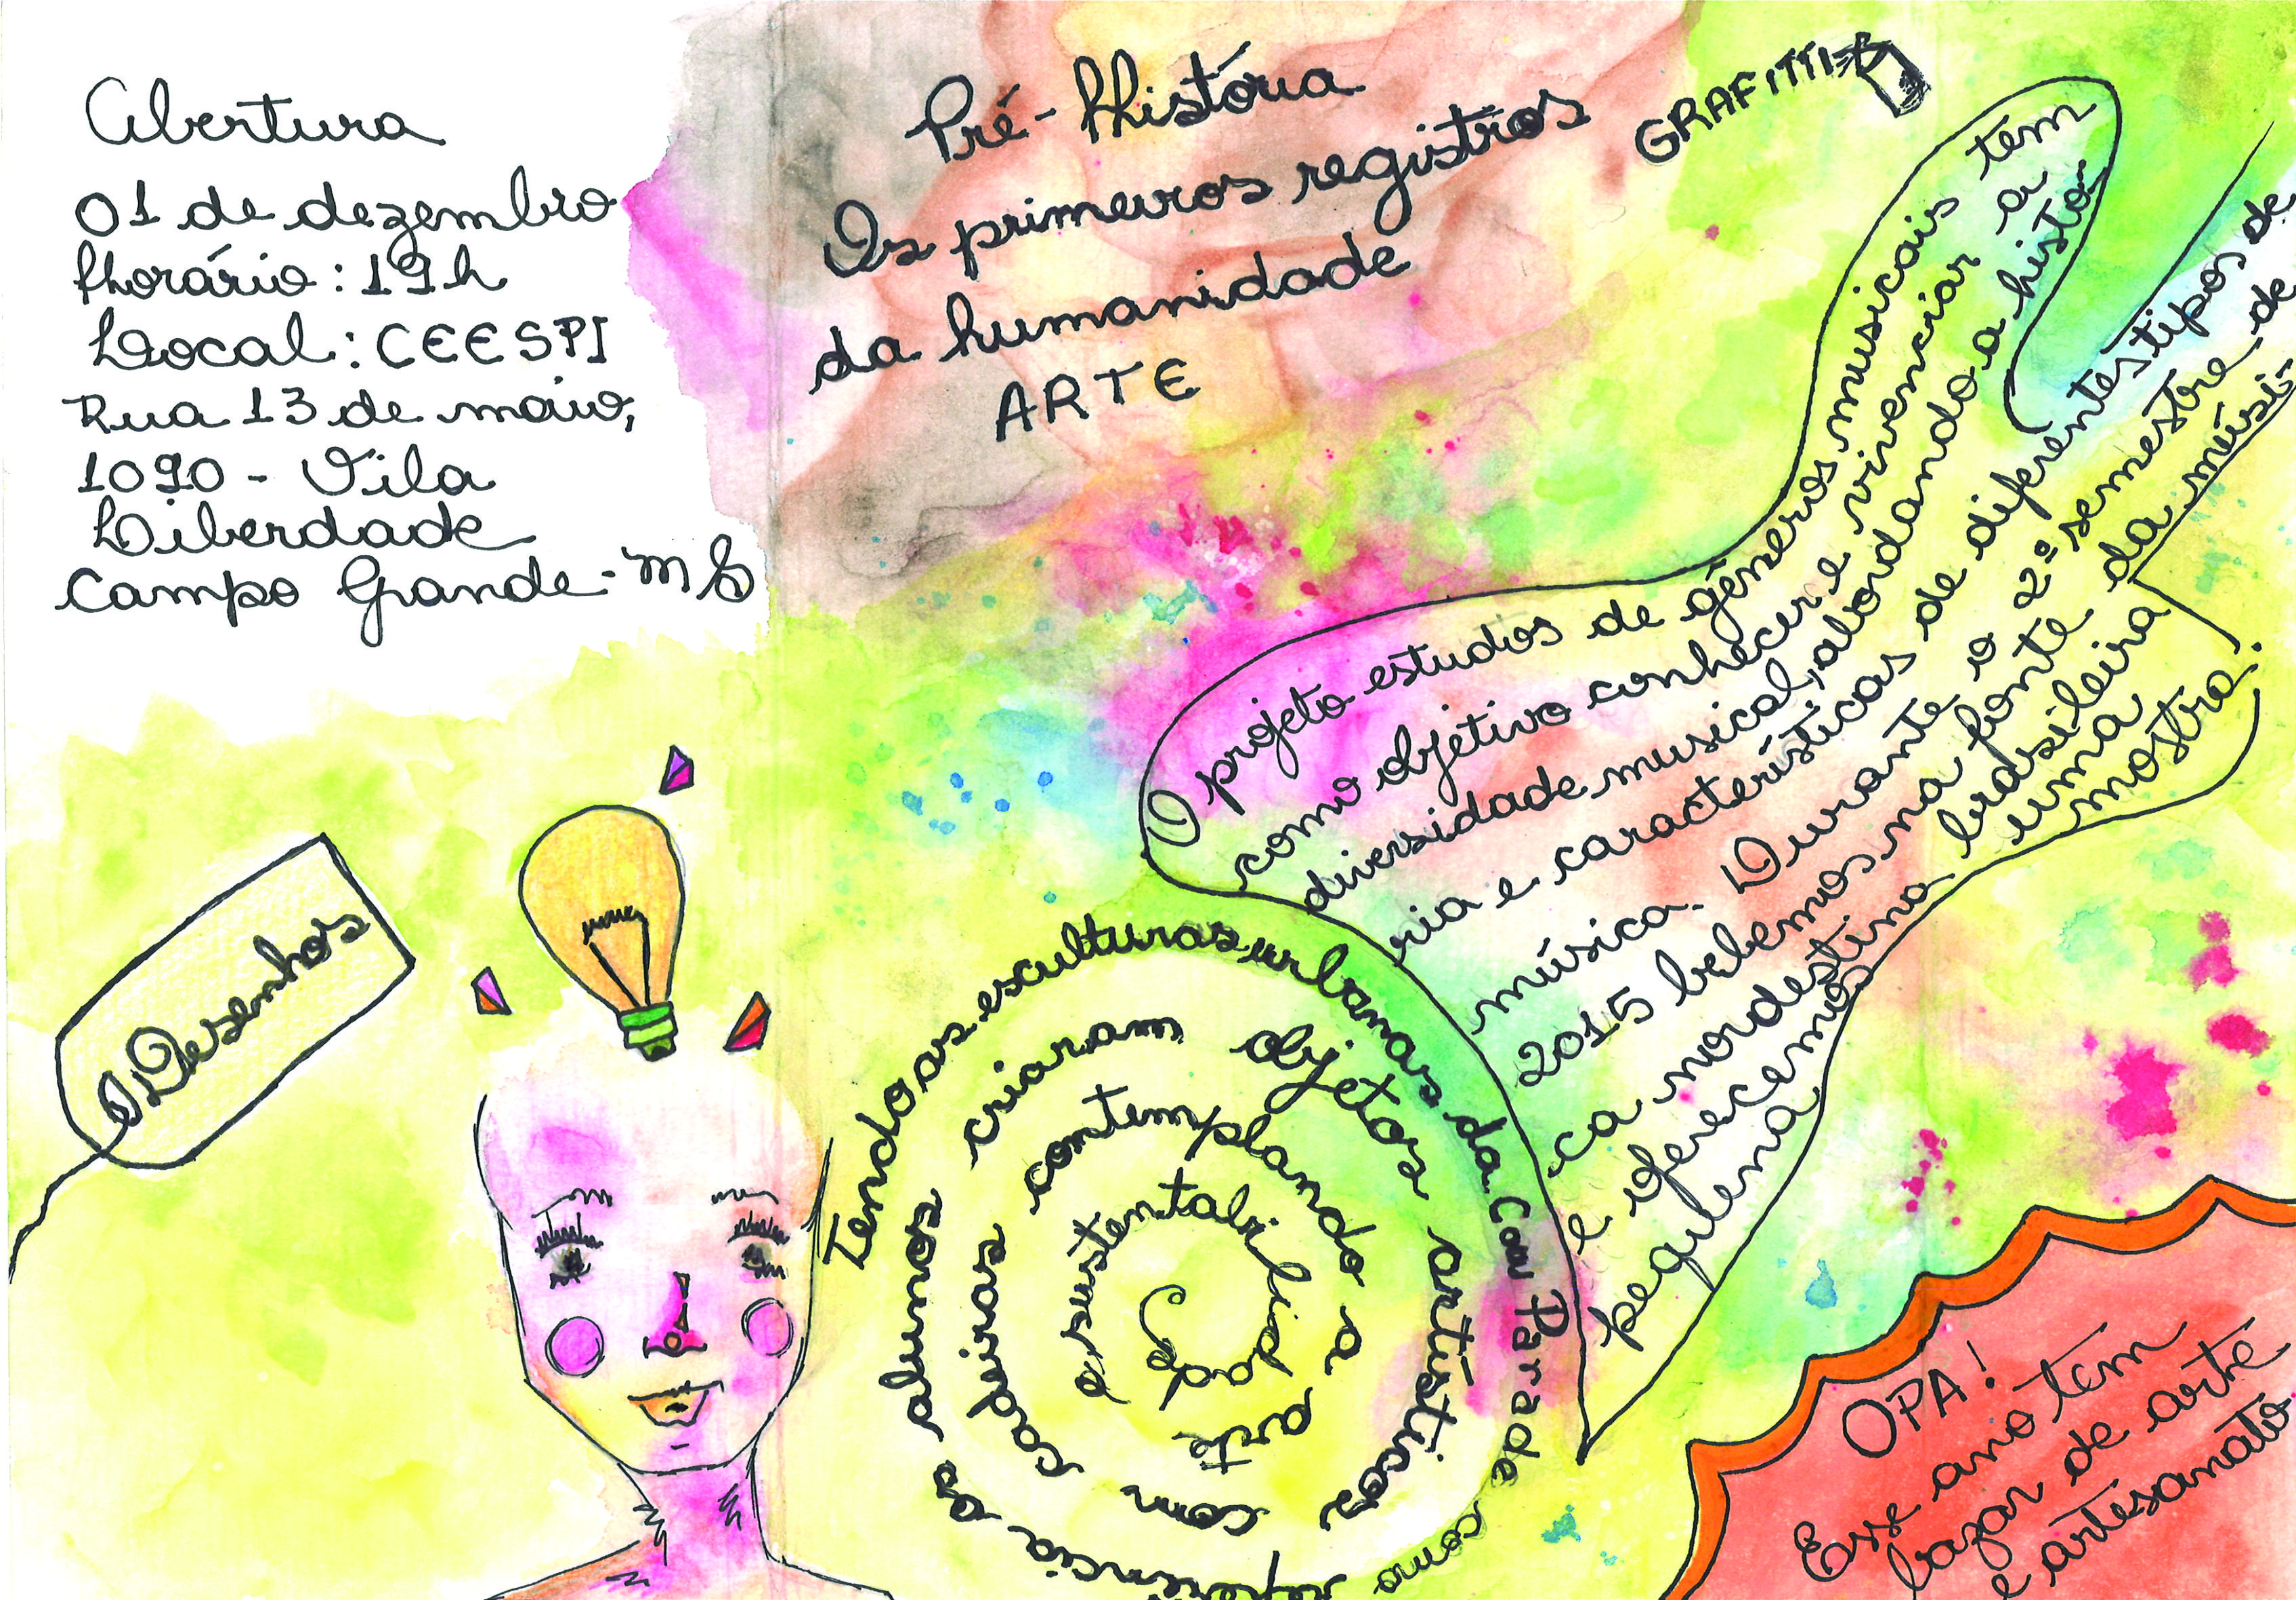 Abertura
01 de dezembro
Horário: 19h
Local: CEESPI
Rua 13 de maio,
1090 - Vila
Liberdade
Campo Grande - MS
Pré-História
Os primeiros registros
da humanidade
ARTE
GRAFITTI
O projeto estudos de gêneros musicais tem
como objetivo conhecer e vivenciar a
diversidade musical, abordando a histó-
ria e características de diferentes tipos de
música. Durante o 2º semestre de
2015 bebemos na fonte da músi-
ca nordestina brasileira
e oferecemos uma
pequena mostra.
Desenhos
Tendo as esculturas urbanas da Cow Parade como referência os alunos criaram objetos artísticos com cadeiras contemplando a arte e sustentabilidade
OPA!
Esse ano tem
bazar de arte
e artesanato